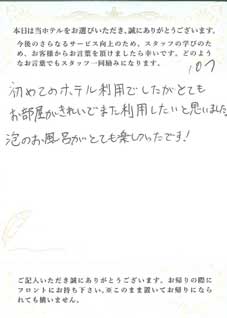 本日は当ホテルをお選びいただき、誠にありがとうございます。
今後のさらなるサービス向上のため、スタッフの学びのため、お客様からお言葉を頂けましたら幸いです。どのようなお言葉でもスタッフ一同励みになります。
107
初めてのホテル利用でしたがとても
お部屋がきれいでまた利用したいと思いました。
泡のお風呂がとても楽しかったです!
ご記入いただき誠にありがとうございます。お帰りの際に
フロントにお持ち下さい。※このまま置いてお帰りになら
れても構いません。